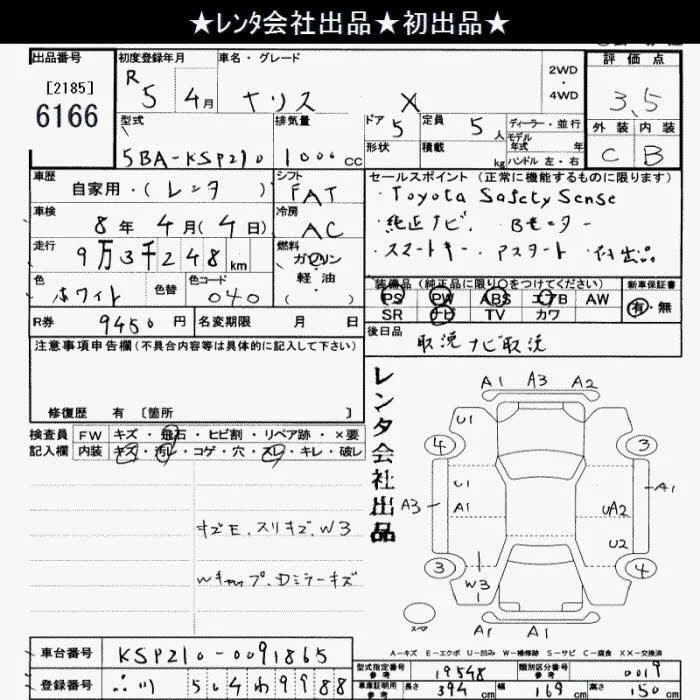 ★レンタ会社出品★初出品★
出品番号 初度登録年月 車名・グレード 2WD・4WD 評価点
[2185] R5 4月 ヤリス X 3.5
6166 型式 排気量 ドア 5 定員 5人 ディーラー・並行 外装 内装
5BA-KSP210 1000cc 形状 積載 kg モデル年式 年 ハンドル 左・右 C B
車歴 自家用・(レンタ) シフト FAT セールスポイント (正常に機能するものに限ります)
車検 8年 4月(4日) 冷房 AC ・Toyota Safety Sense
走行 9万3千248km 燃料 ガソリン・軽油・( ) ・純正ナビ. Bモーター
色 ホワイト 色替 色コード 040 ・スマートキー. Pスタート. 付出品
装備品 (純正品に限り○をつけてください) 新車保証書
PS PW ABS エアB AW 有・無
R券 9450円 名変期限 月 日 SR ナビ TV カワ
注意事項申告欄 (不具合内容等は具体的に記入して下さい) 後日品 取説 ナビ取説
修復歴 有 [箇所 ]
検査員 FW キズ・飛石・ヒビ割・リペア跡・×要
記入欄 内装 キズ・汚レ・コゲ・穴・スレ・キレ・破レ
レンタ会社出品
A1 A3 A2
U1
4 3
U1 A1
A3 A1 UA2
キズE. スリキズ. W3 U2
3 4
Wキャップ. Dミラーキズ W3
スペア A1 A1
A-キズ E-エクボ U-凹み W-補修跡 S-サビ C-腐食 XX-交換済
車台番号 KSP210-0091865 型式指定番号 参考 19548 類別区分番号 参考 0019
登録番号 504わ9988 車庫証明用 参考 長さ 394cm 幅 169cm 高さ 150cm